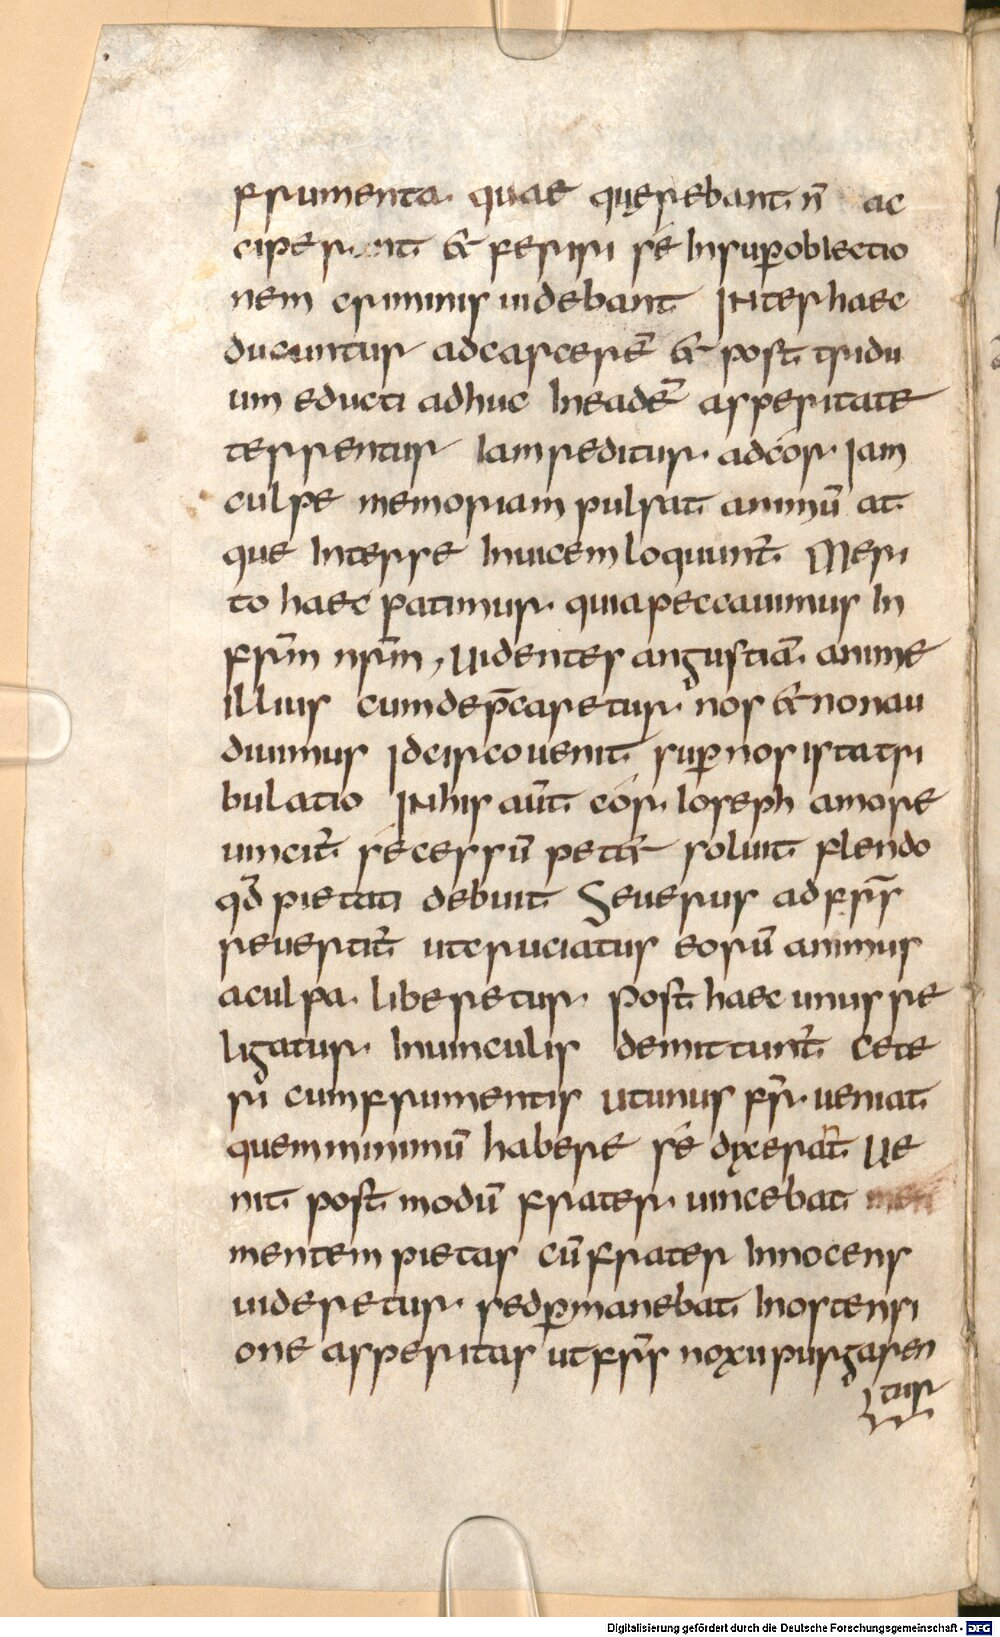 frumenta. quae quęrebant. n̄ ac
ciper nt. & feriri sé Insup̱oblectio
nem criminis uidebant INter haec
ducuntur adcarcerē & post. tridu
um educti adhuc Ineadē asperitate
terrentur Iamreditur. adcór. Iam
culpe memoriam pulsat. animū at
que Interse Inuicemloquunt̄. Meri
to haec patimur. quiapeccauimus In
fr̄m nr̄m, Uidentes angustiā. anime
illius cumdep̄caretur. nos & nonau
diuimus Idcircouenit. sup̱nos istatri
bulatio INhis aūt. cór. Ioseph amore
uincit̄. sécessū pet& soluit. flendo
qd̄ pietati debuit. Seuerus adfr̄s
reuertit̄ utcruciatus eorū animus
aculpa. liberetur. Post. haec unus re
ligatur. Inuinculis demittunt̄. cete
ri cumfrumentis utunus fr̄. ueniat.
quemminimū habere sé dyxerat̄ Ue
nit. post. modū frater. uincebat. men
mentem pietas cū frater Innocens
uideretur. sedp̱manebat. Inostensi
one asperitas utfr̄s noxii purgaren
tur
Digitalisierung gefördert durch die Deutsche Forschungsgemeinschaft - DFG